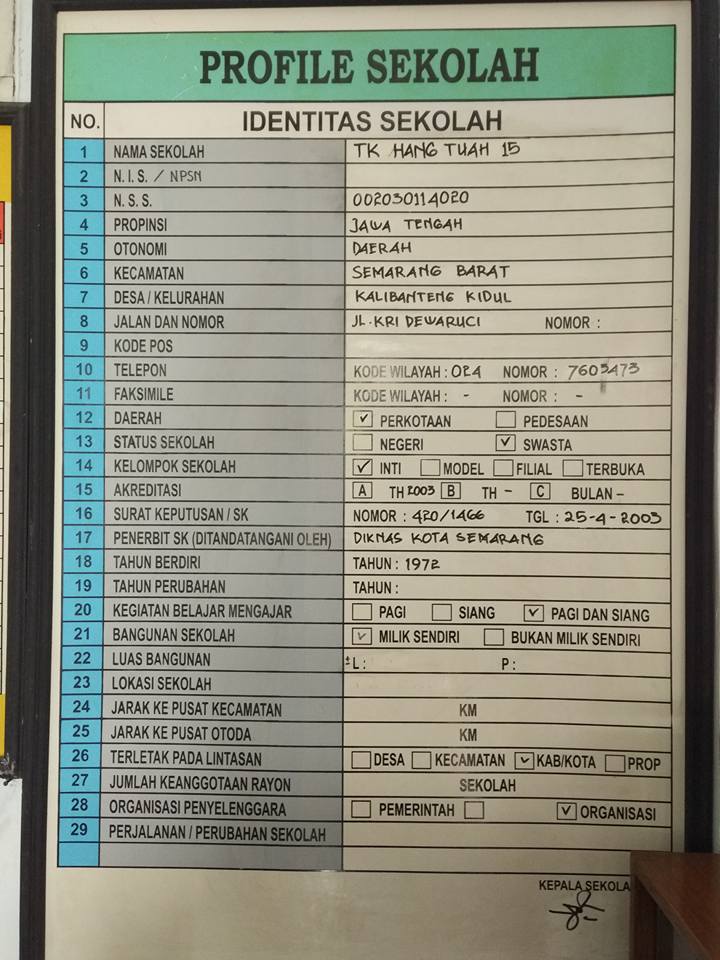 PROFILE SEKOLAH
NO. IDENTITAS SEKOLAH
1 NAMA SEKOLAH TK HANG TUAH 15
2 N. I. S. / NPSN
3 N. S. S. 002030114020
4 PROPINSI JAWA TENGAH
5 OTONOMI DAERAH
6 KECAMATAN SEMARANG BARAT
7 DESA / KELURAHAN KALIBANTENG KIDUL
8 JALAN DAN NOMOR JL. KRI DEWARUCI NOMOR :
9 KODE POS
10 TELEPON KODE WILAYAH : 024 NOMOR : 7603473
11 FAKSIMILE KODE WILAYAH : - NOMOR : -
12 DAERAH ✓ PERKOTAAN PEDESAAN
13 STATUS SEKOLAH NEGERI ✓ SWASTA
14 KELOMPOK SEKOLAH ✓ INTI MODEL FILIAL TERBUKA
15 AKREDITASI A TH 2003 B TH - C BULAN -
16 SURAT KEPUTUSAN / SK NOMOR : 420/1466 TGL : 25-4-2003
17 PENERBIT SK (DITANDATANGANI OLEH) DIKNAS KOTA SEMARANG
18 TAHUN BERDIRI TAHUN : 1972
19 TAHUN PERUBAHAN TAHUN :
20 KEGIATAN BELAJAR MENGAJAR PAGI SIANG ✓ PAGI DAN SIANG
21 BANGUNAN SEKOLAH ✓ MILIK SENDIRI BUKAN MILIK SENDIRI
22 LUAS BANGUNAN ± L : P :
23 LOKASI SEKOLAH
24 JARAK KE PUSAT KECAMATAN KM
25 JARAK KE PUSAT OTODA KM
26 TERLETAK PADA LINTASAN DESA KECAMATAN ✓ KAB/KOTA PROP
27 JUMLAH KEANGGOTAAN RAYON SEKOLAH
28 ORGANISASI PENYELENGGARA PEMERINTAH ✓ ORGANISASI
29 PERJALANAN / PERUBAHAN SEKOLAH
KEPALA SEKOLA